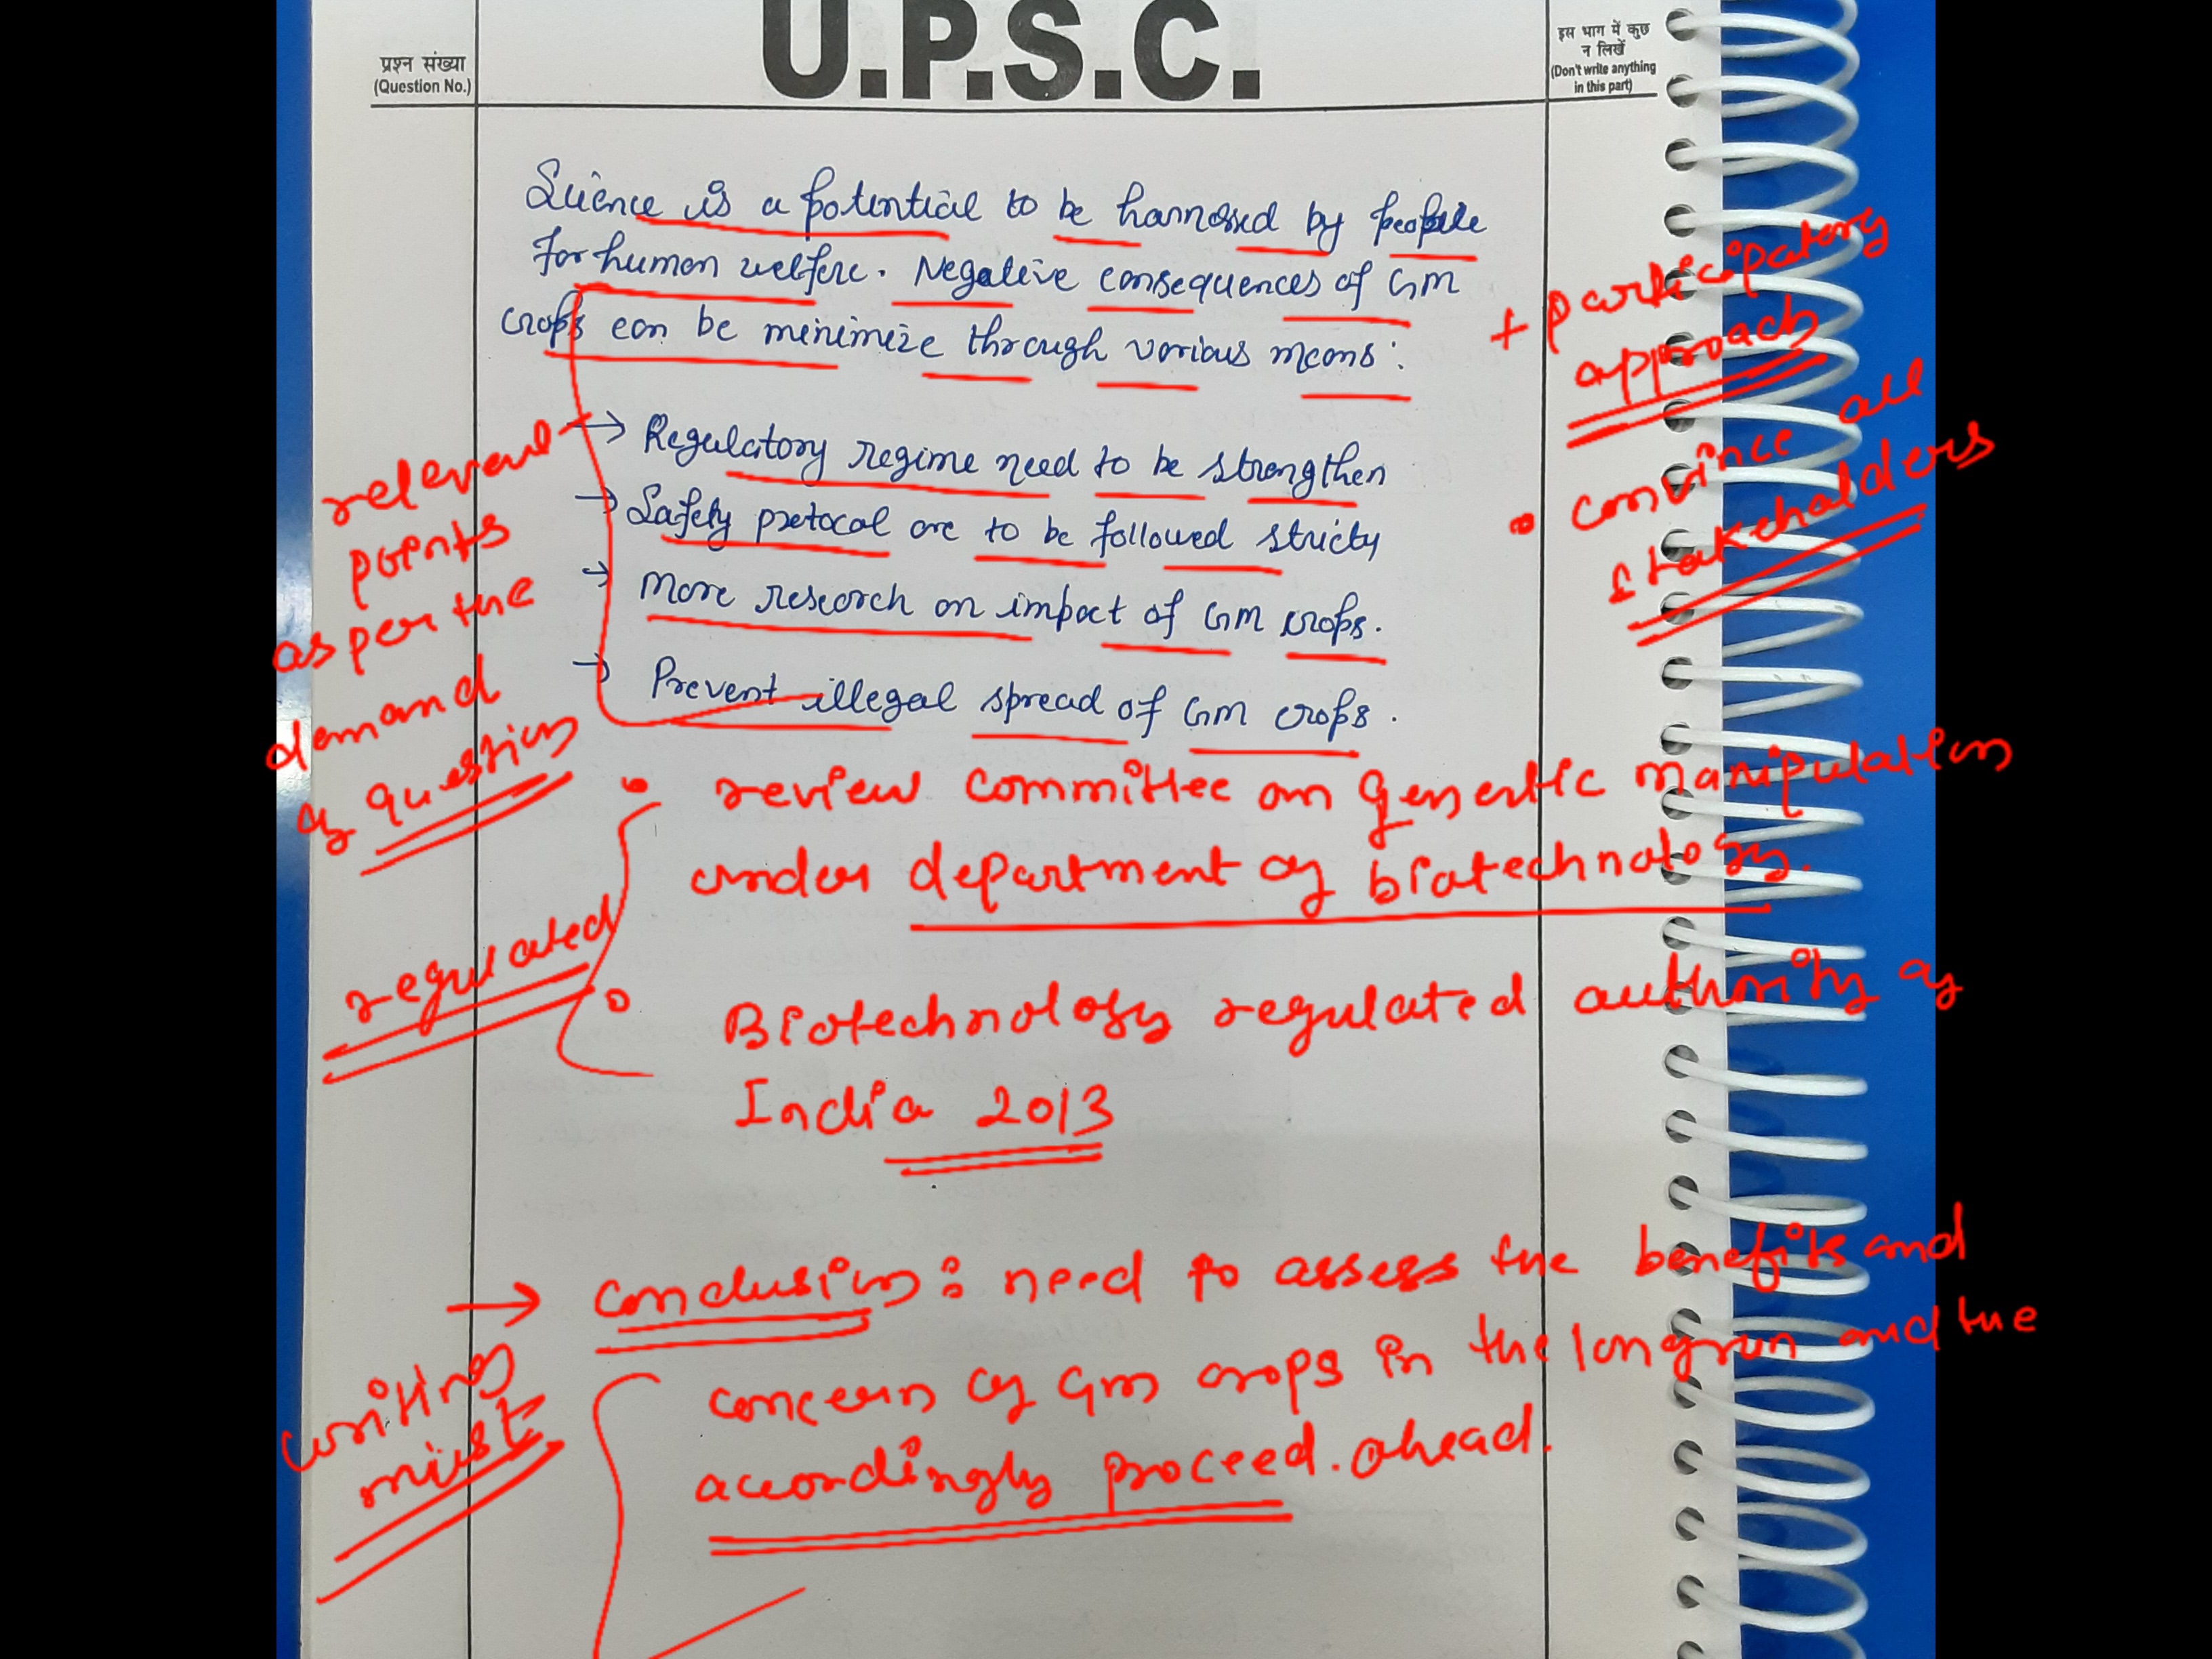 U.P.S.C.
प्रश्न संख्या
(Question No.)
इस भाग में कुछ
न लिखें
(Don't write anything
in this part)
Science is a potential to be harnessed by people
for human welfare. Negative consequences of GM
crops can be minimize through various means:
→ Regulatory regime need to be strengthen
→ Safety protocal are to be followed stricty
→ More research on impact of GM crops.
→ Prevent illegal spread of GM crops.
+ participatory
approach
• convince all
stakeholders
relevant
points
as per the
demand
of question
• review committee on Genertic manipulation
under department of biotechnology.
regulated
• Biotechnology regulated authority of
India 2013
→ conclusion: need to assess the benefits and
concern of GM crops in the long run and the
accordingly proceed. ahead.
writing
must